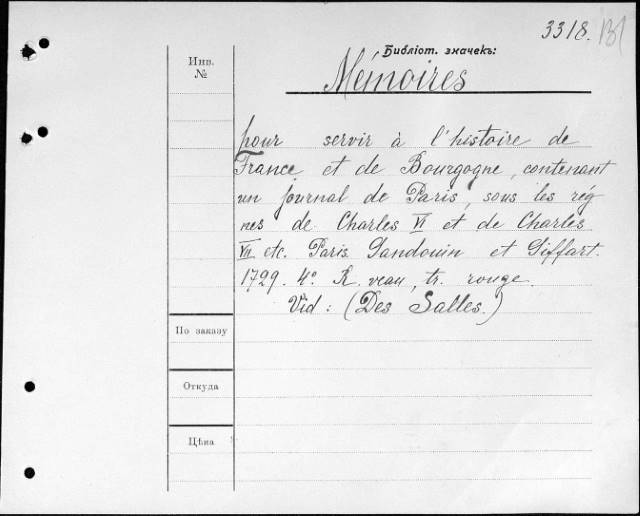 3318.
Библіот. значекъ:
Инв.
№
Mémoires
pour servir à l'histoire de
France, et de Bourgogne, contenant
un journal de Paris, sous les rég
nes de Charles VI et de Charles
VII etc. Paris. Gandouin et Giffart.
1729. 4º. R. veau, tr. rouge.
Vid: (Des Salles.)
По заказу
Откуда
Цѣна